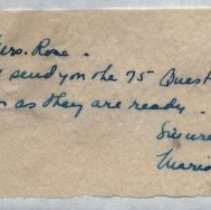 Mrs. Rose.
send you the 75 Quest
as they are ready.
Sincere
Maria